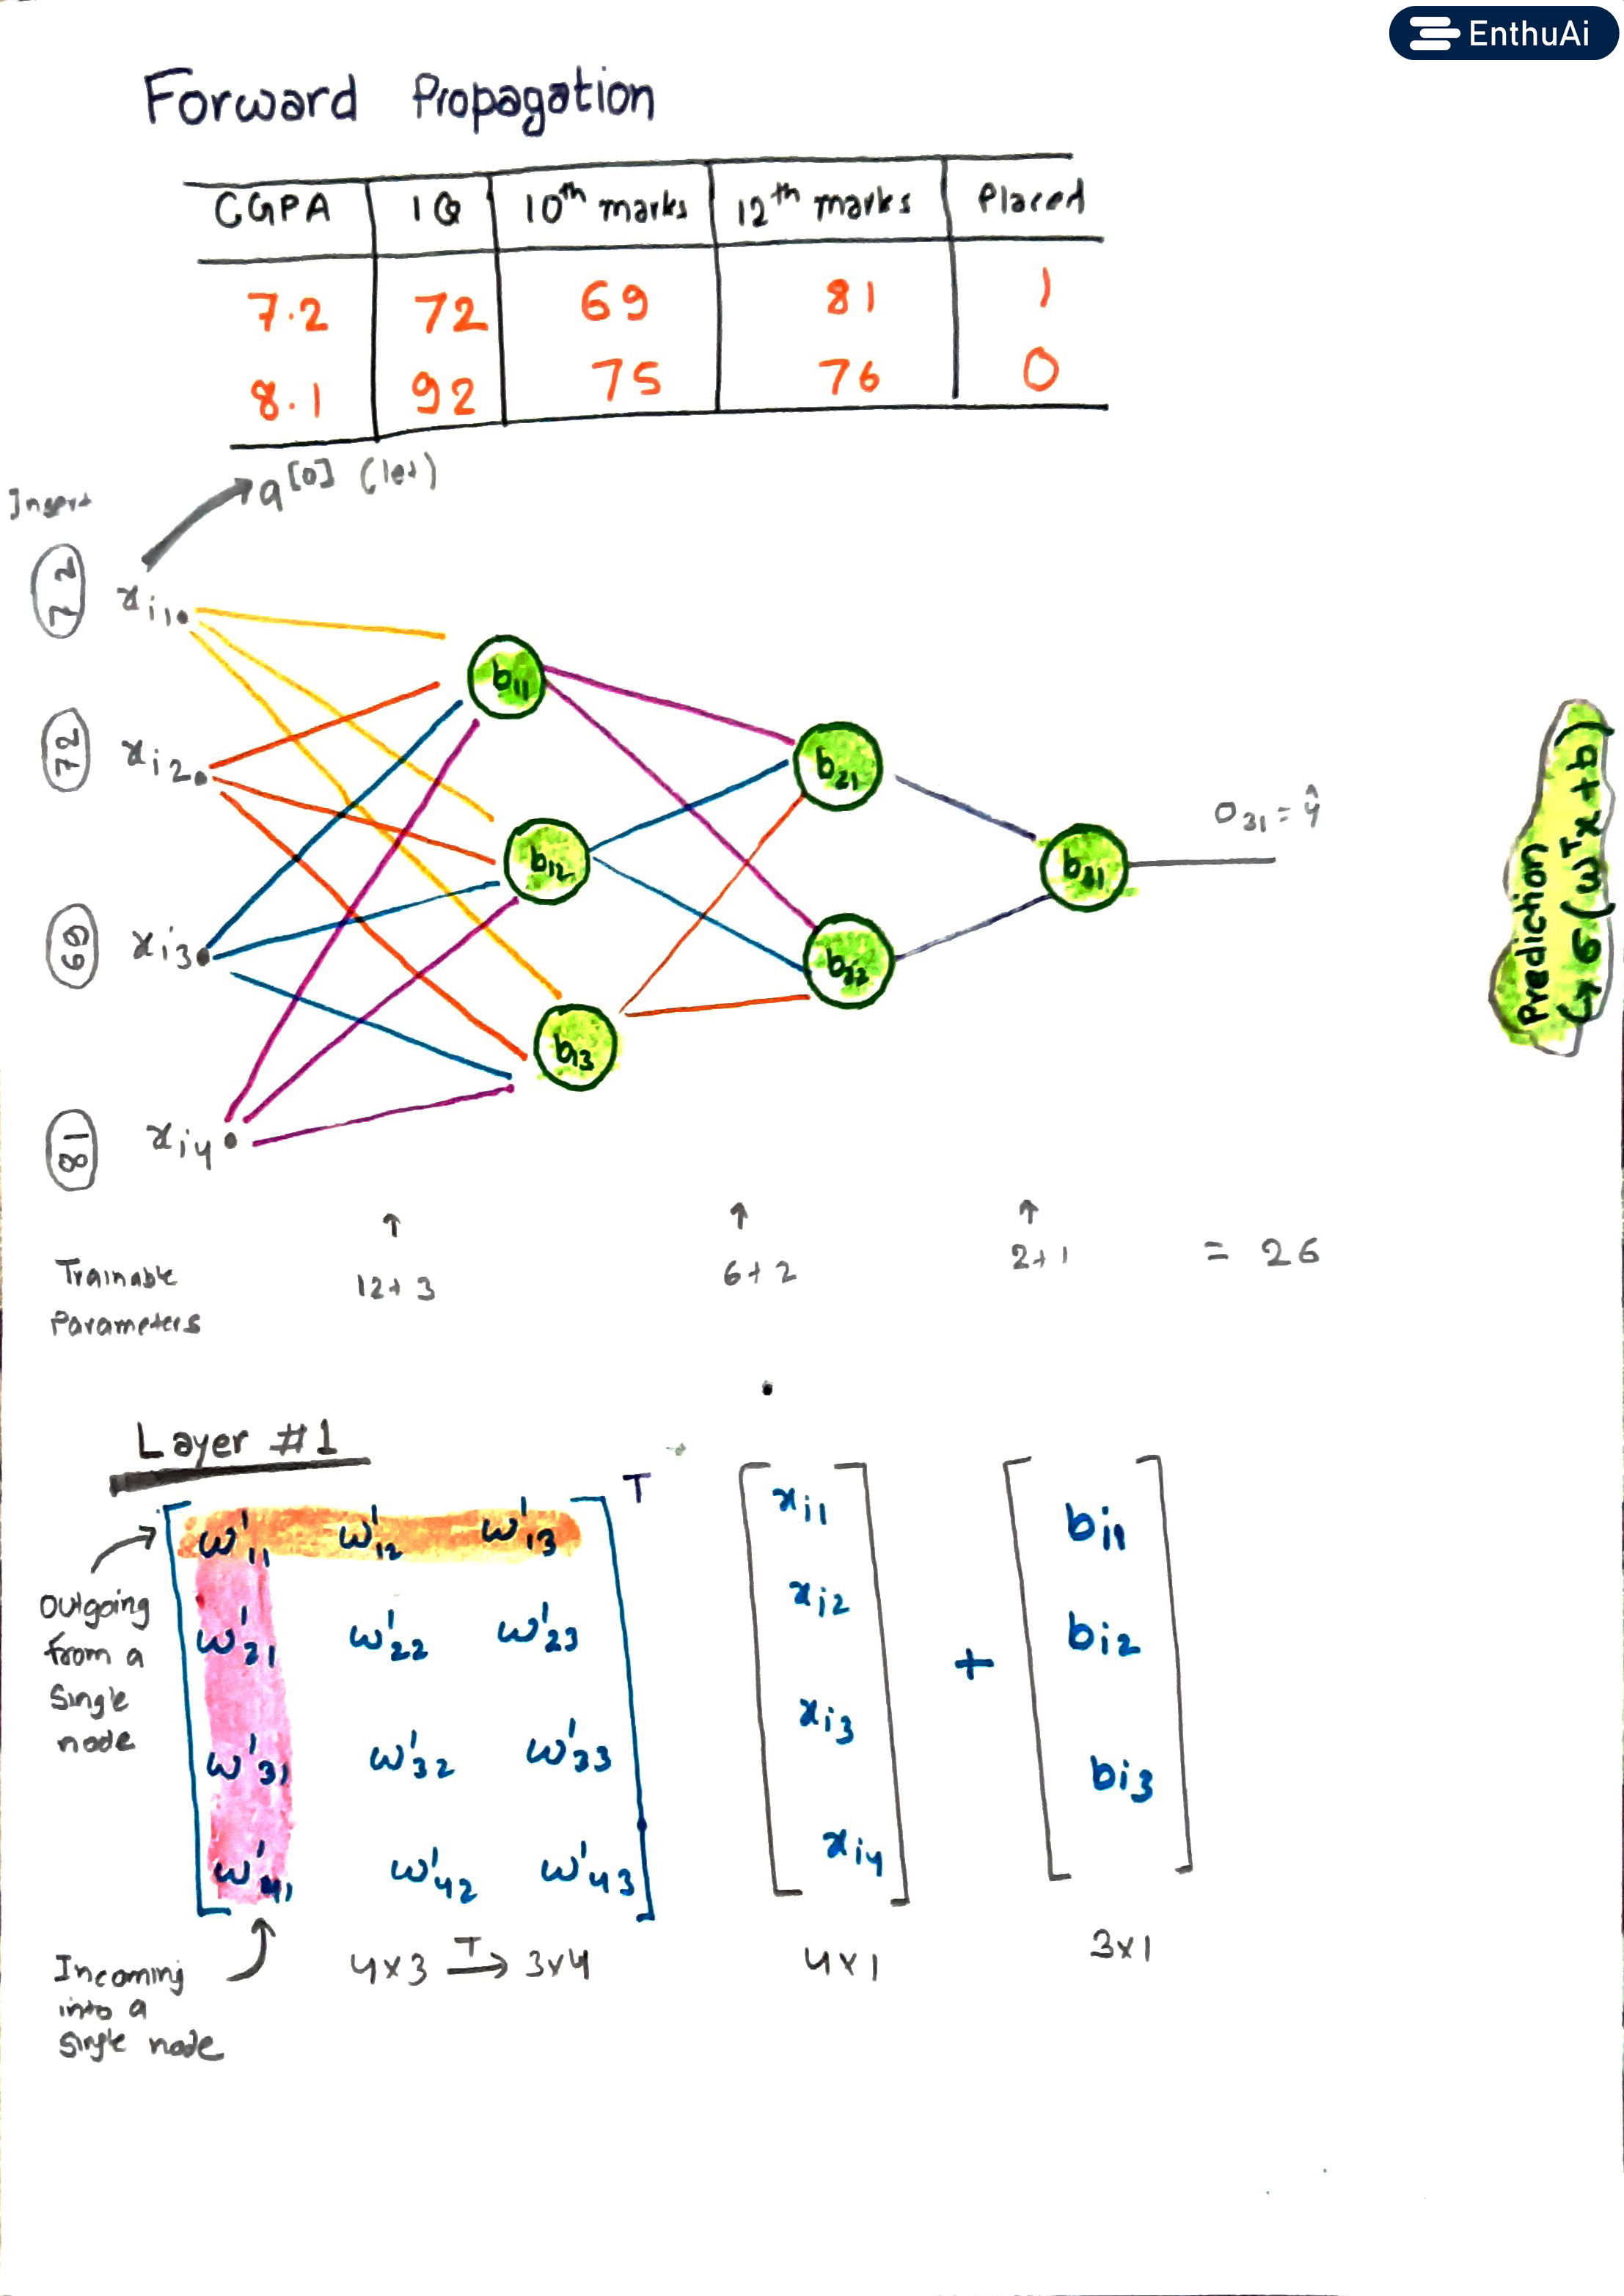 EnthuAi
Forward Propagation
CGPA IQ 10th marks 12th marks Placed
7.2 72 69 81 1
8.1 92 75 76 0
a[0] (let)
Insert
7.2 xi1
72 xi2
69 xi3
81 xi4
b11
b12
b13
b21
b22
b31
O31 = ŷ
Prediction
↳ σ(ωᵀx+b)
↑ ↑ ↑
Trainable Parameters
12+3 6+2 2+1 = 26
Layer #1
T
ω'11 ω'12 ω'13
ω'21 ω'22 ω'23
ω'31 ω'32 ω'33
ω'41 ω'42 ω'43
xi1
xi2
xi3
xi4
+
bi1
bi2
bi3
Outgoing
from a
single
node
Incoming
into a
single node
4x3 T→ 3x4
4x1
3x1